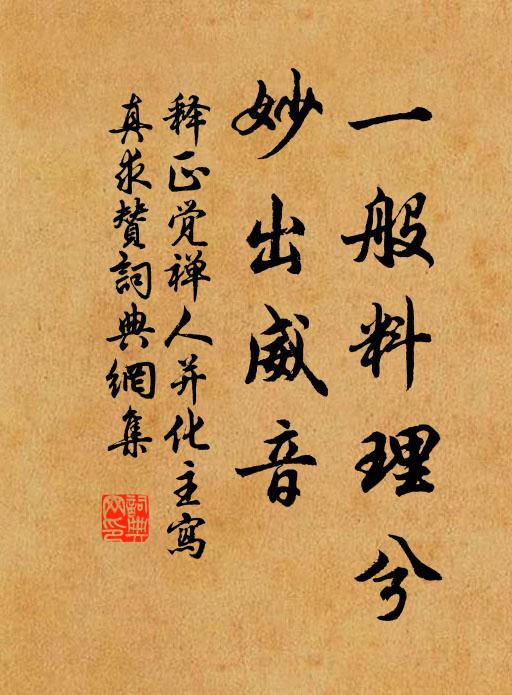 一般料理兮
妙出威音
释正觉禅人并化主寫
真求賛詞典網集
詞典